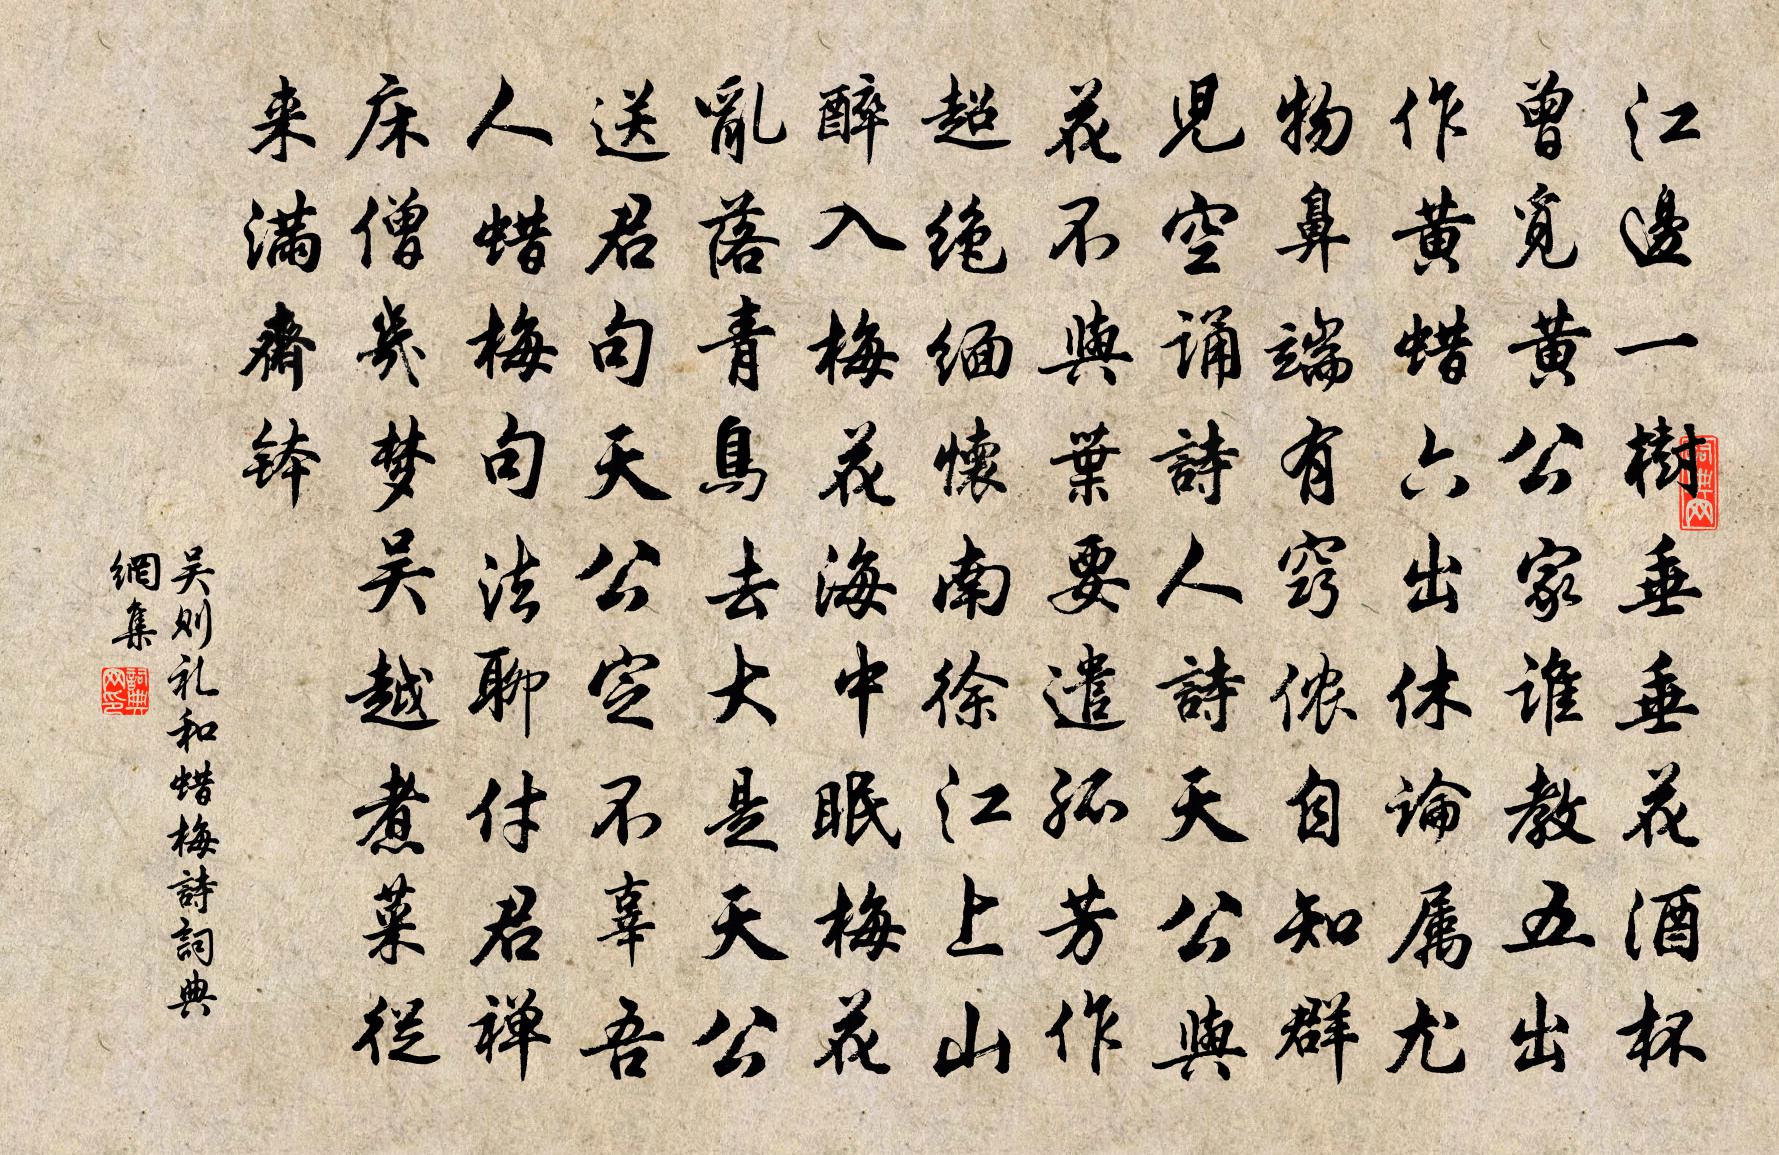 江邊一樹垂垂花酒杯
曾覓黃公家誰教五出
作黃蜡六出休論属尤
物鼻端有窍侬自知群
児空诵詩人詩天公與
花不與葉要遣孤芳作
超绝缅懷南徐江上山
醉入梅花海中眠梅花
亂落青鳥去大是天公
送君句天公定不辜吾
人蜡梅句法聊付君禅
床僧幾梦吴越煮菜従
来满齋钵
吴则礼和蜡梅詩詞典
網集
詞典网
詞典网印